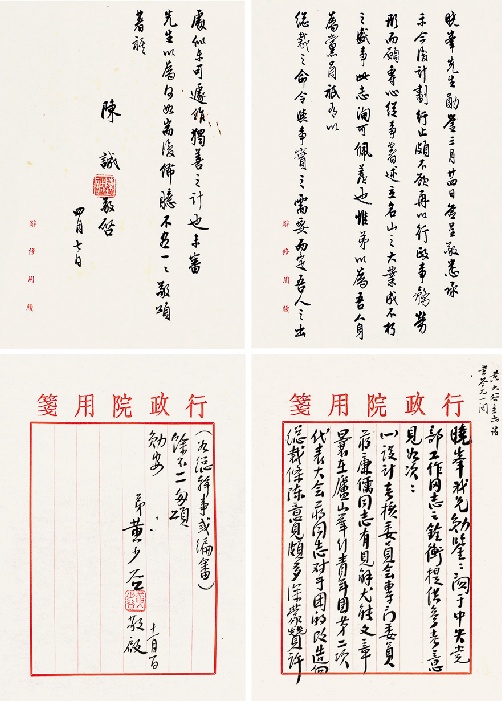 曉峯先生勛鑒三月廿四日
示今後計劃行止頗不願再以行政事務勞
形而願專心從事著述立名山之大業成不朽
之盛事此志洵可佩羨也惟弟以為吾人身
為黨員
總裁之命令與事實之需要而定吾人之出
處似未可遽作獨善之計也未審
先生以為何如耑復佈臆不盡一一敬頌
著祺
陳誠敬啓
四月七日
行政院用箋
曉峯我兄勛鑒:關于中央党
部工作同志之銓衡提供參考意
見如次:
(一)設計考核委員會專門委員
蔣廉儒同志有見解尤能文章
曩在廬山舉行青年團第二次
代表大會蔣同志对于團的改造向
總裁條陳意見頗多深蒙贊許
行政院用箋
(為總幹事或編審)
餘不一一敬頌
勛安
弟黃少谷
敬啟